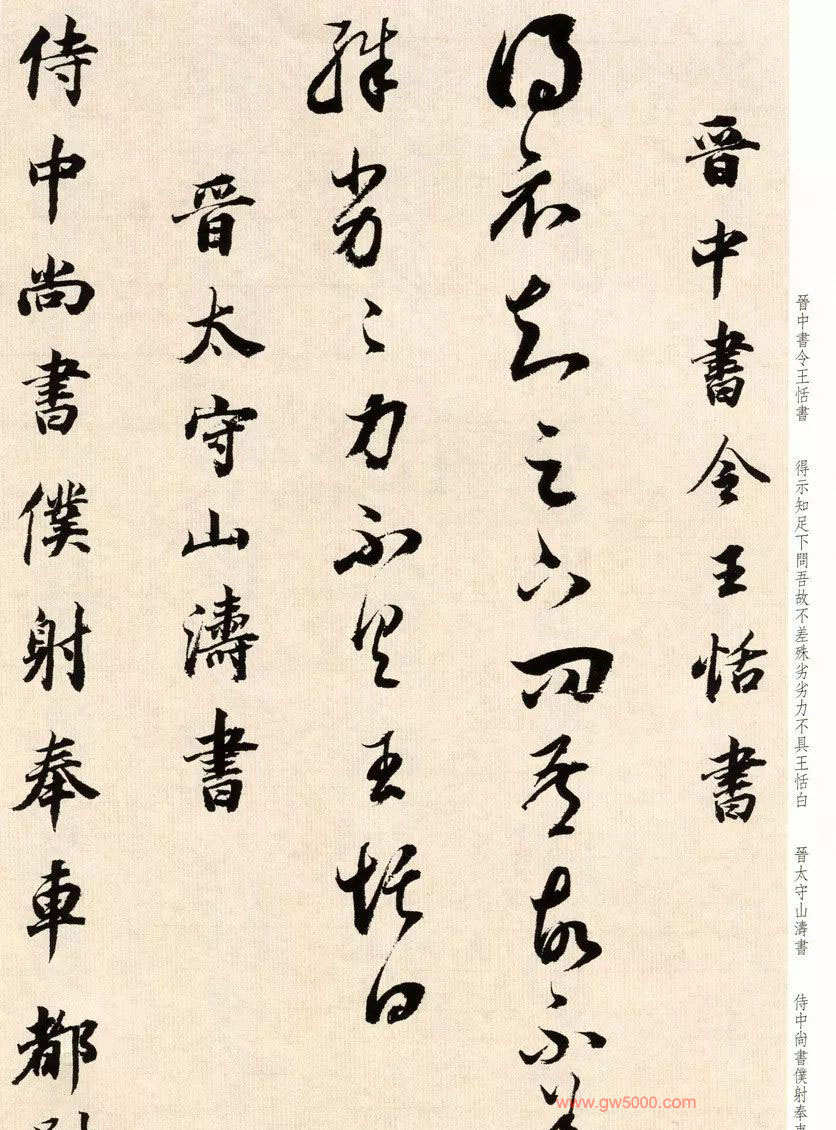 晉中書令王恬書
得示知足下問吾故不差
殊劣〻力不具王恬白
晉太守山濤書
侍中尚書僕射奉車都
晉中書令王恬書 得示知足下問吾故不差殊劣劣力不具王恬白 晉太守山濤書 侍中尚書僕射奉車
www.gw5000.com